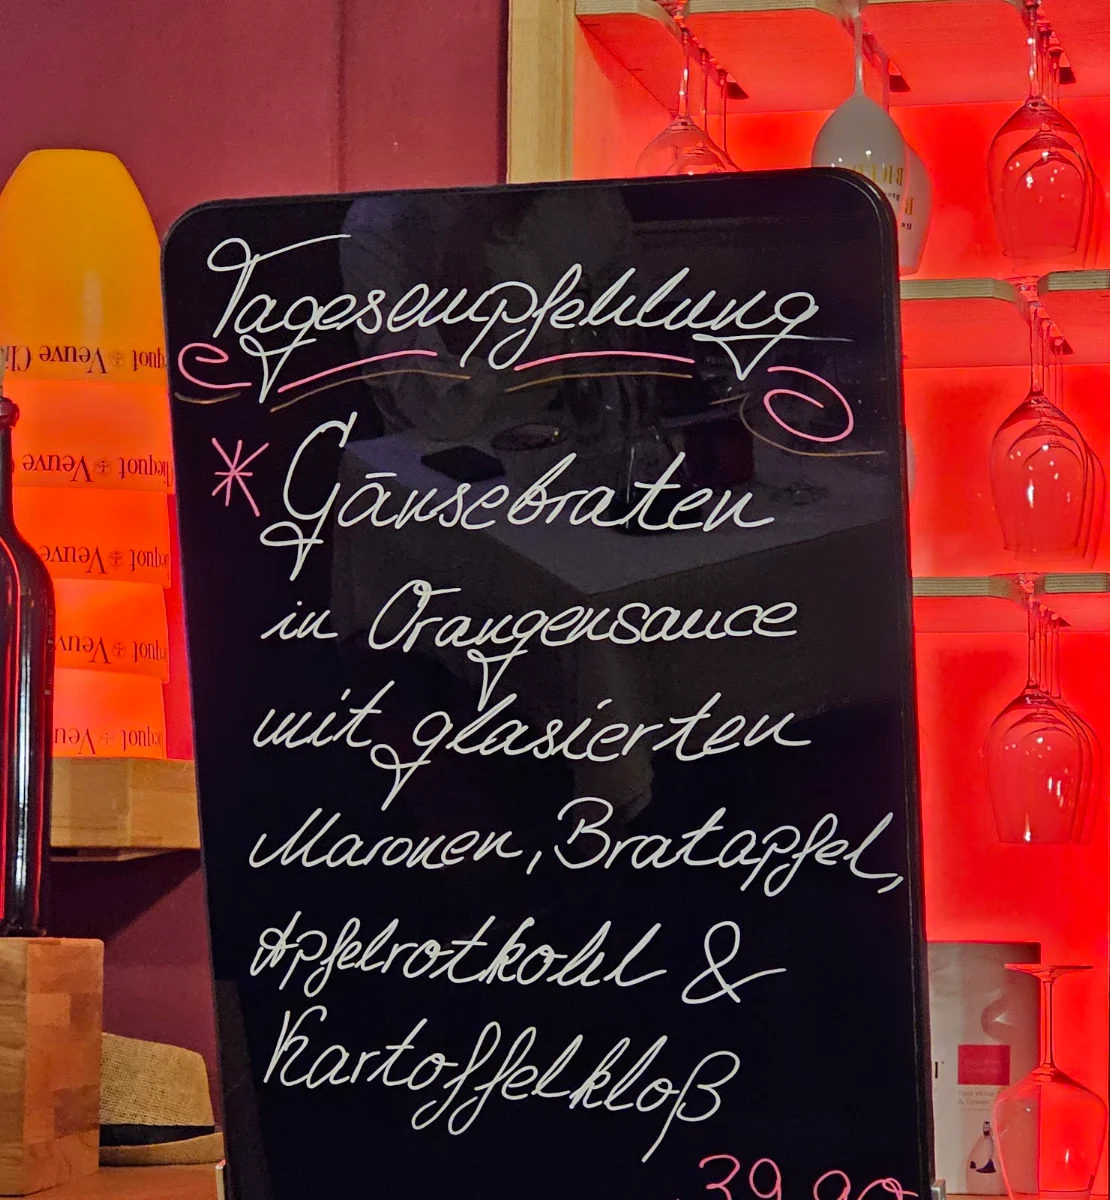 Tagesempfehlung
* Gänsebraten
in Orangensauce
mit glasierten
Maronen, Bratapfel,
Apfelrotkohl &
Kartoffelkloß
39,90
Veuve Cli
icquot Veuve
icquot Veuve
icquot Veuve
icquot Veuve
icquot